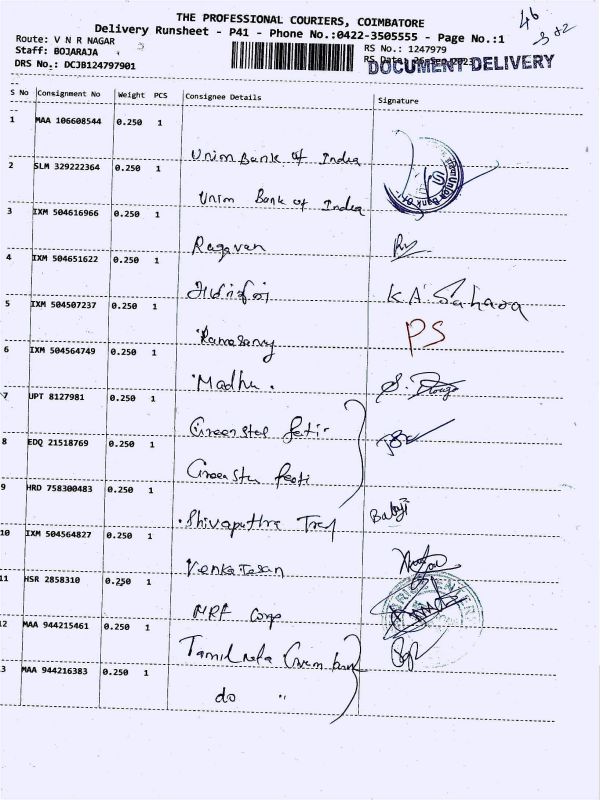 THE PROFESSIONAL COURIERS, COIMBATORE
Delivery Runsheet - P41 - Phone No.:0422-3505555 - Page No.:1
46
Route: V N R NAGAR
RS No.: 1247979
Staff: BOJARAJA
DRS No.: DCJB124797901
DOCUMENT DELIVERY
S No Consignment No Weight PCS Consignee Details Signature
1 MAA 106608544 0.250 1
Union Bank of India
2 SLM 329222364 0.250 1
Union Bank of India
3 IXM 504616966 0.250 1
Ragavan
4 IXM 504651622 0.250 1
K A. Sahana
5 IXM 504507237 0.250 1
Ramasamy PS
6 IXM 504564749 0.250 1
Madhu.
7 UPT 8127981 0.250 1
Greenstar
8 EDQ 21518769 0.250 1
9 HRD 758300483 0.250 1
Shivaputhra Babji
10 IXM 504564827 0.250 1
Venkatesan
11 HSR 2858310 0.250 1
MRF Corp
12 MAA 944215461 0.250 1
13 MAA 944216383 0.250 1
do "